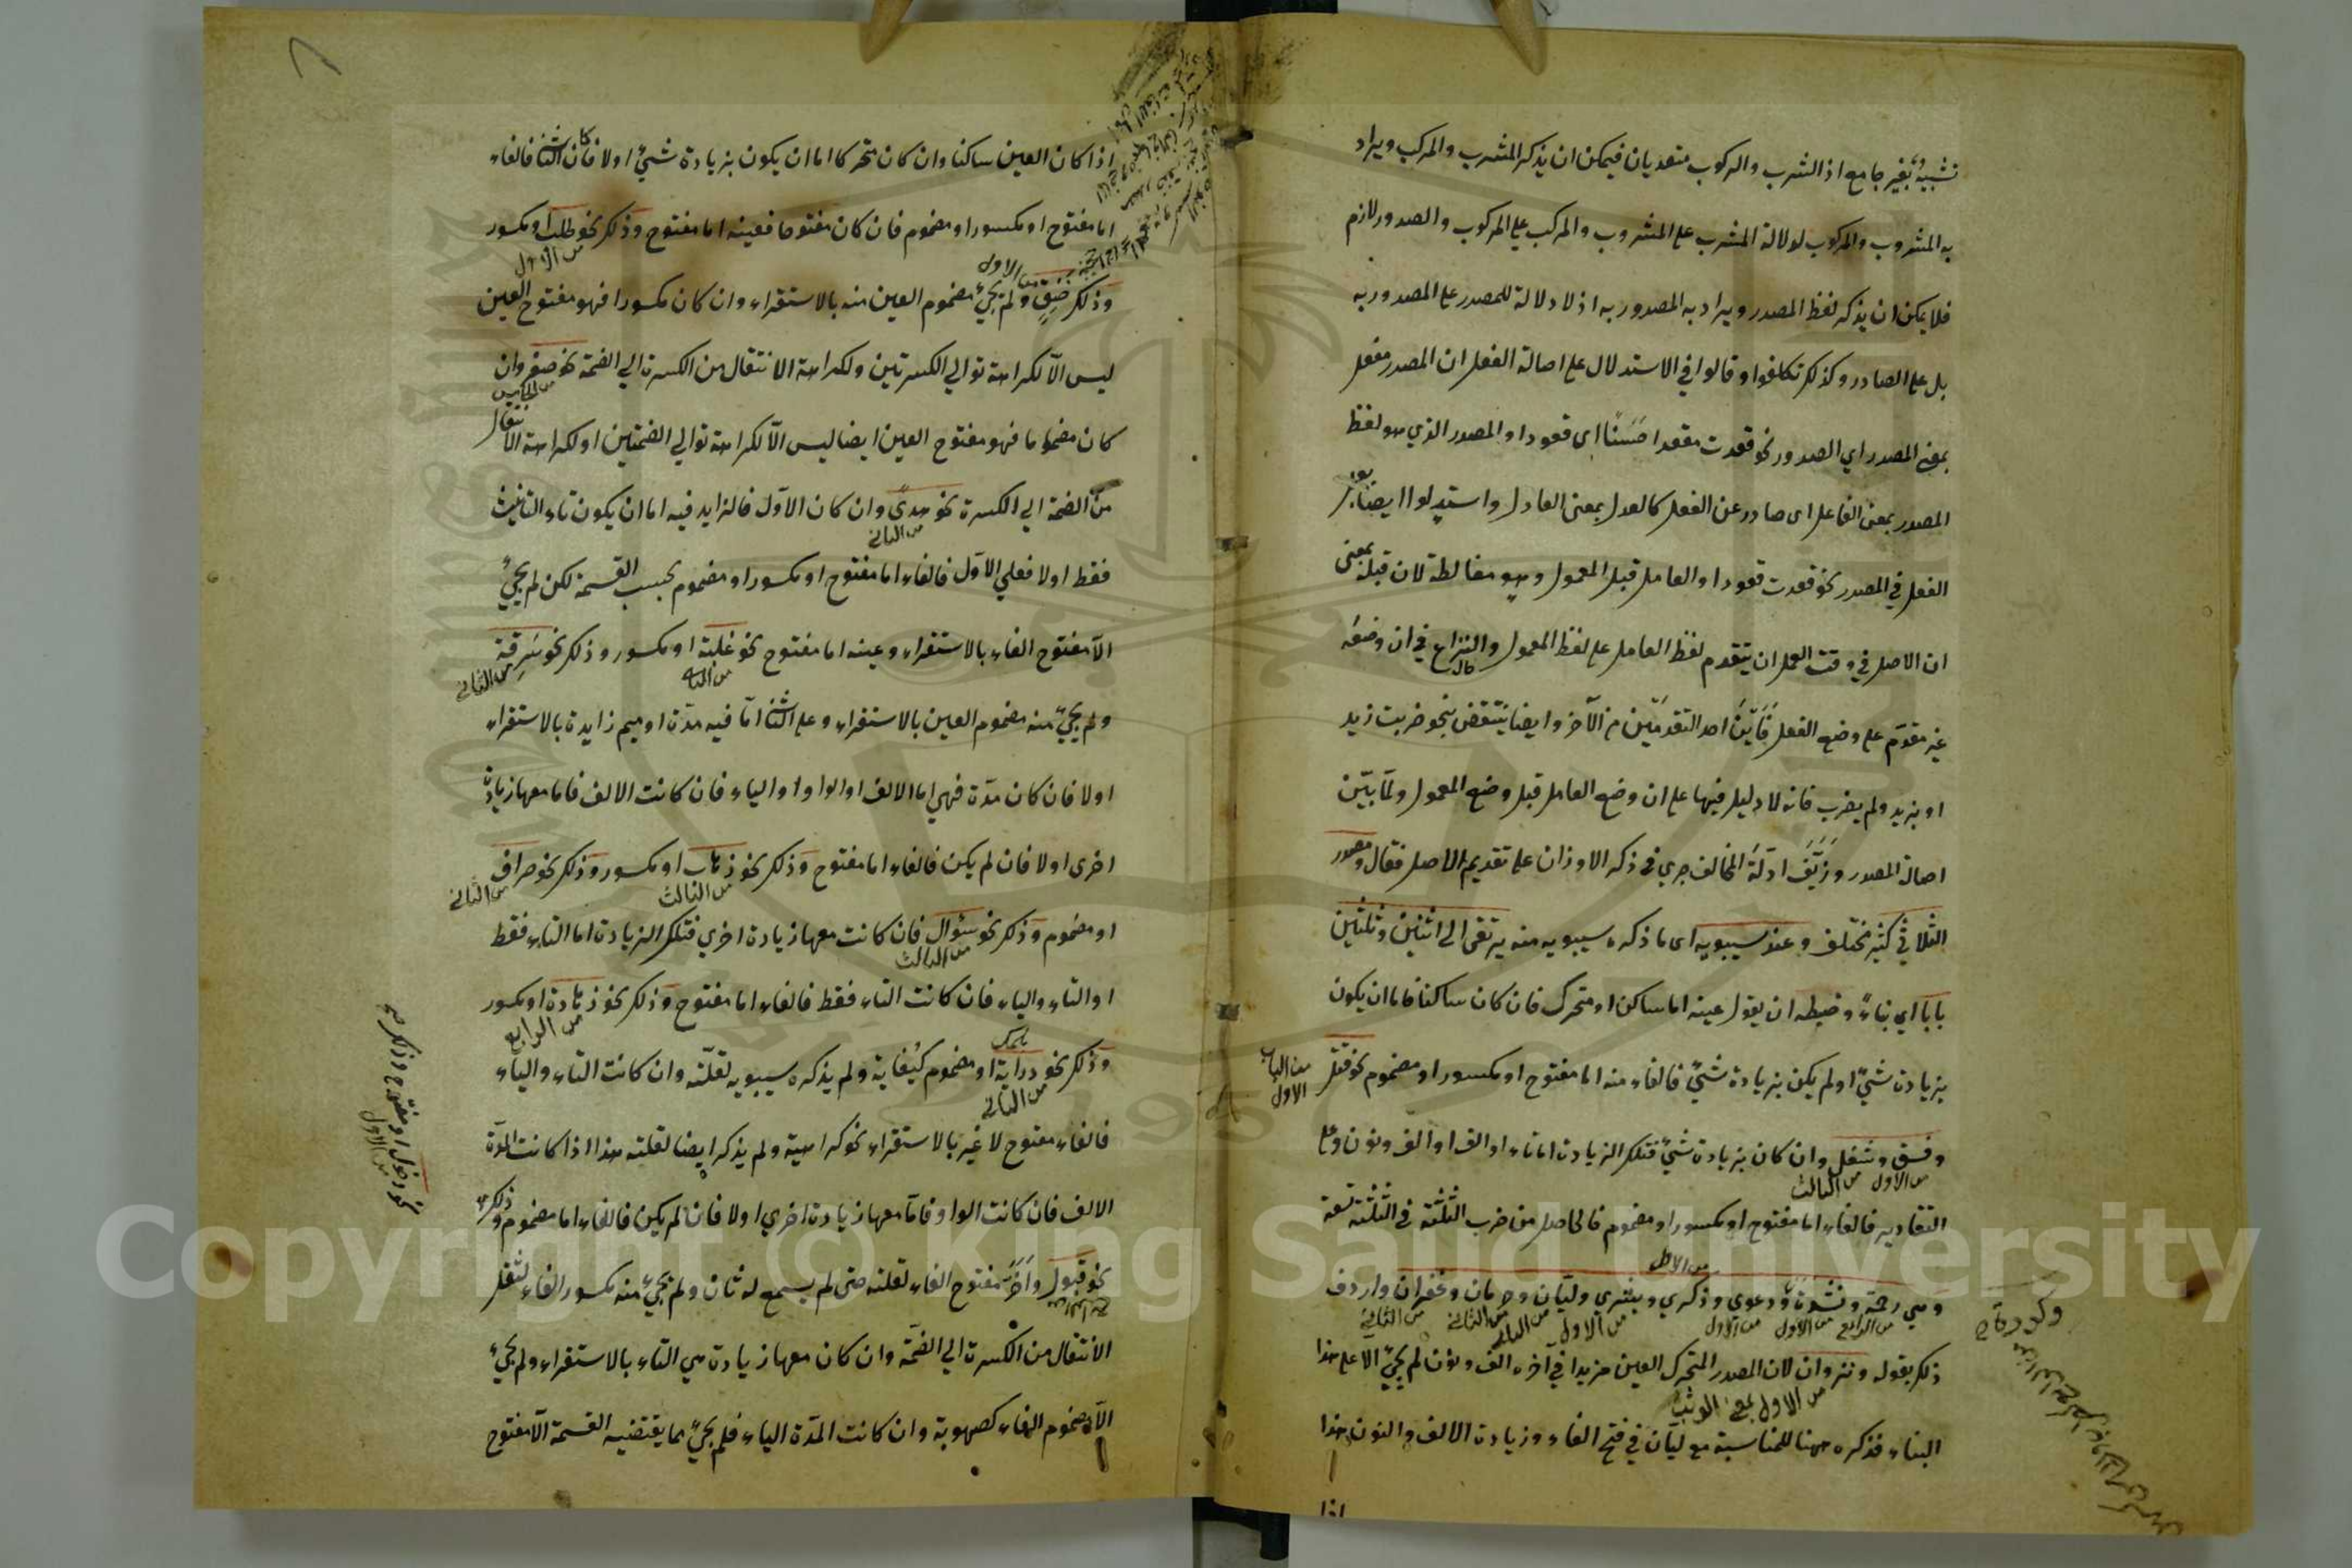 تشبيه بغير جامع اذ الشرب والركوب متعديان فيمكن ان يذكر المشرب والمركب ويراد
به المشروب والمركوب لدلالة المشرب على المشروب والمركب على المركوب والصدور لازم
فلا يمكن ان يذكر لفظ المصدر ويراد به المصدور به اذ لا دلالة للمصدر على المصدور به
بل على الصادر وكذلك تكلفوا وقالوا في الاستدلال على اصالة الفعل ان المصدر مفعل
بمعنى المصدر اي الصدور نحو قعدت مقعدا حسنا اى قعودا والمصدر الذي هو لفظ
المصدر بمعنى الفاعل اى صادر عن الفعل كالعدل بمعنى العادل واستدلوا ايضا
الفعل في المصدر نحو قعدت قعودا والعامل قبل المعمول وهو مغالطة لان قبلية بمعنى
ان الاصل في وقت العمل ان يتقدم لفظ العامل على لفظ المعمول والنزاع في ان وضعه
غير مقدم على وضع الفعل فاين احد التقدمين من الآخر وايضا ينتقض بنحو ضربت زيد
او بزيد ولم يضرب فانه لا دليل فيها على ان وضع العامل قبل وضع المعمول ولما بين
اصالة المصدر وزيف ادلة المخالف جرى في ذكر الاوزان على تقديم الاصل فقال ومصدر
الثلاثي كثير مختلف وعند سيبويه اى ما ذكره سيبويه منه يرتقى الى اثنين وثلثين
بابا اي بناء وضبطه ان يقول عينه اما ساكن او متحرك فان كان ساكنا فاما ان يكون
بزيادة شيئ او لم يكن بزيادة شيئ فالفاء منه اما مفتوح او مكسور او مضموم نحو قتل
من الباب الاول
وفسق وشغل وان كان بزيادة شيئ فتلك الزيادة اما تاء او الف او الف ونون وعلى
من الاول من الثالث
التقادير فالفاء اما مفتوح او مكسور او مضموم فالحاصل من ضرب الثلثة في الثلثة تسعة
من الاول
وهي رحمة ونشدة ودعوى وذكرى وبشرى وليان وحرمان وغفران واردف
من الرابع من الاول من الاول من الاول من الثاني من الثاني
ذلك بقوله ونزوان لان المصدر المتحرك العين مزيدا في آخره الف ونون لم يجئ الا على هذا
من الاول بمعنى الوثب
البناء فذكره ههنا للمناسبة مع ليان في فتح الفاء وزيادة الالف والنون هذا
اذا
وكدرة
اذا كان العين ساكنا وان كان متحركا اما ان يكون بزيادة شيئ اولا فان كان الثاني فالفاء
اما مفتوح او مكسور او مضموم فان كان مفتوحا فعينه اما مفتوح وذلك نحو طلب او مكسور
من الاول
وذلك خنق ولم يجئ مضموم العين منه بالاستقراء وان كان مكسورا فهو مفتوح العين
من الاول
ليس الا لكراهة توالي الكسرتين ولكراهة الانتقال من الكسرة الى الضمة نحو صغر وان
من الخامس
كان مضموما فهو مفتوح العين ايضا ليس الا لكراهة توالي الضمتين او لكراهة الانتقال
من الضمة الي الكسرة نحو هدى وان كان الاول فالزايد فيه اما ان يكون تاء التانيث
من الثاني
فقط اولا فعلي الاول فالفاء اما مفتوح او مكسور او مضموم بحسب القسمة لكن لم يجئ
الا مفتوح الفاء بالاستقراء وعينه اما مفتوح نحو غلبة او مكسور وذلك نحو سرقة
من الثاني من الثاني
ولم يجئ منه مضموم العين بالاستقراء وعلى الثاني اما فيه مدة او ميم زايدة بالاستقراء
اولا فان كان مدة فهي اما الالف او الواو او الياء فان كانت الالف فاما معها زيادة
اخرى اولا فان لم يكن فالفاء اما مفتوح وذلك نحو ذهاب او مكسور وذلك نحو صراف
من الثالث من الثاني
او مضموم وذلك نحو سؤال فان كانت معها زيادة اخري فتلك الزيادة اما التاء فقط
من الثالث
او التاء والياء فان كانت التاء فقط فالفاء اما مفتوح وذلك نحو زهادة او مكسور
من الرابع
وذلك نحو دراية او مضموم كبغاية ولم يذكره سيبويه لقلته وان كانت التاء والياء
من الثاني
فالفاء مفتوح لا غير بالاستقراء نحو كراهية ولم يذكر ايضا لقلته هذا اذا كانت المدة
الالف فان كانت الواو فاما معها زيادة اخري اولا فان لم يكن فالفاء اما مضموم وذلك
نحو دخول او مفتوح وذلك صح
من الاول
نحو قبول واخر مفتوح الفاء لقلته حتى لم يسمع له ثان ولم يجئ منه مكسور الفاء لثقل
الانتقال من الكسرة الي الضمة وان كان معها زيادة هي التاء بالاستقراء ولم يجئ
الا مضموم الفاء كصهوبة وان كانت المدة الياء فلم يجئ مما يقتضيه القسمة الا مفتوح
Copyright © King Saud University